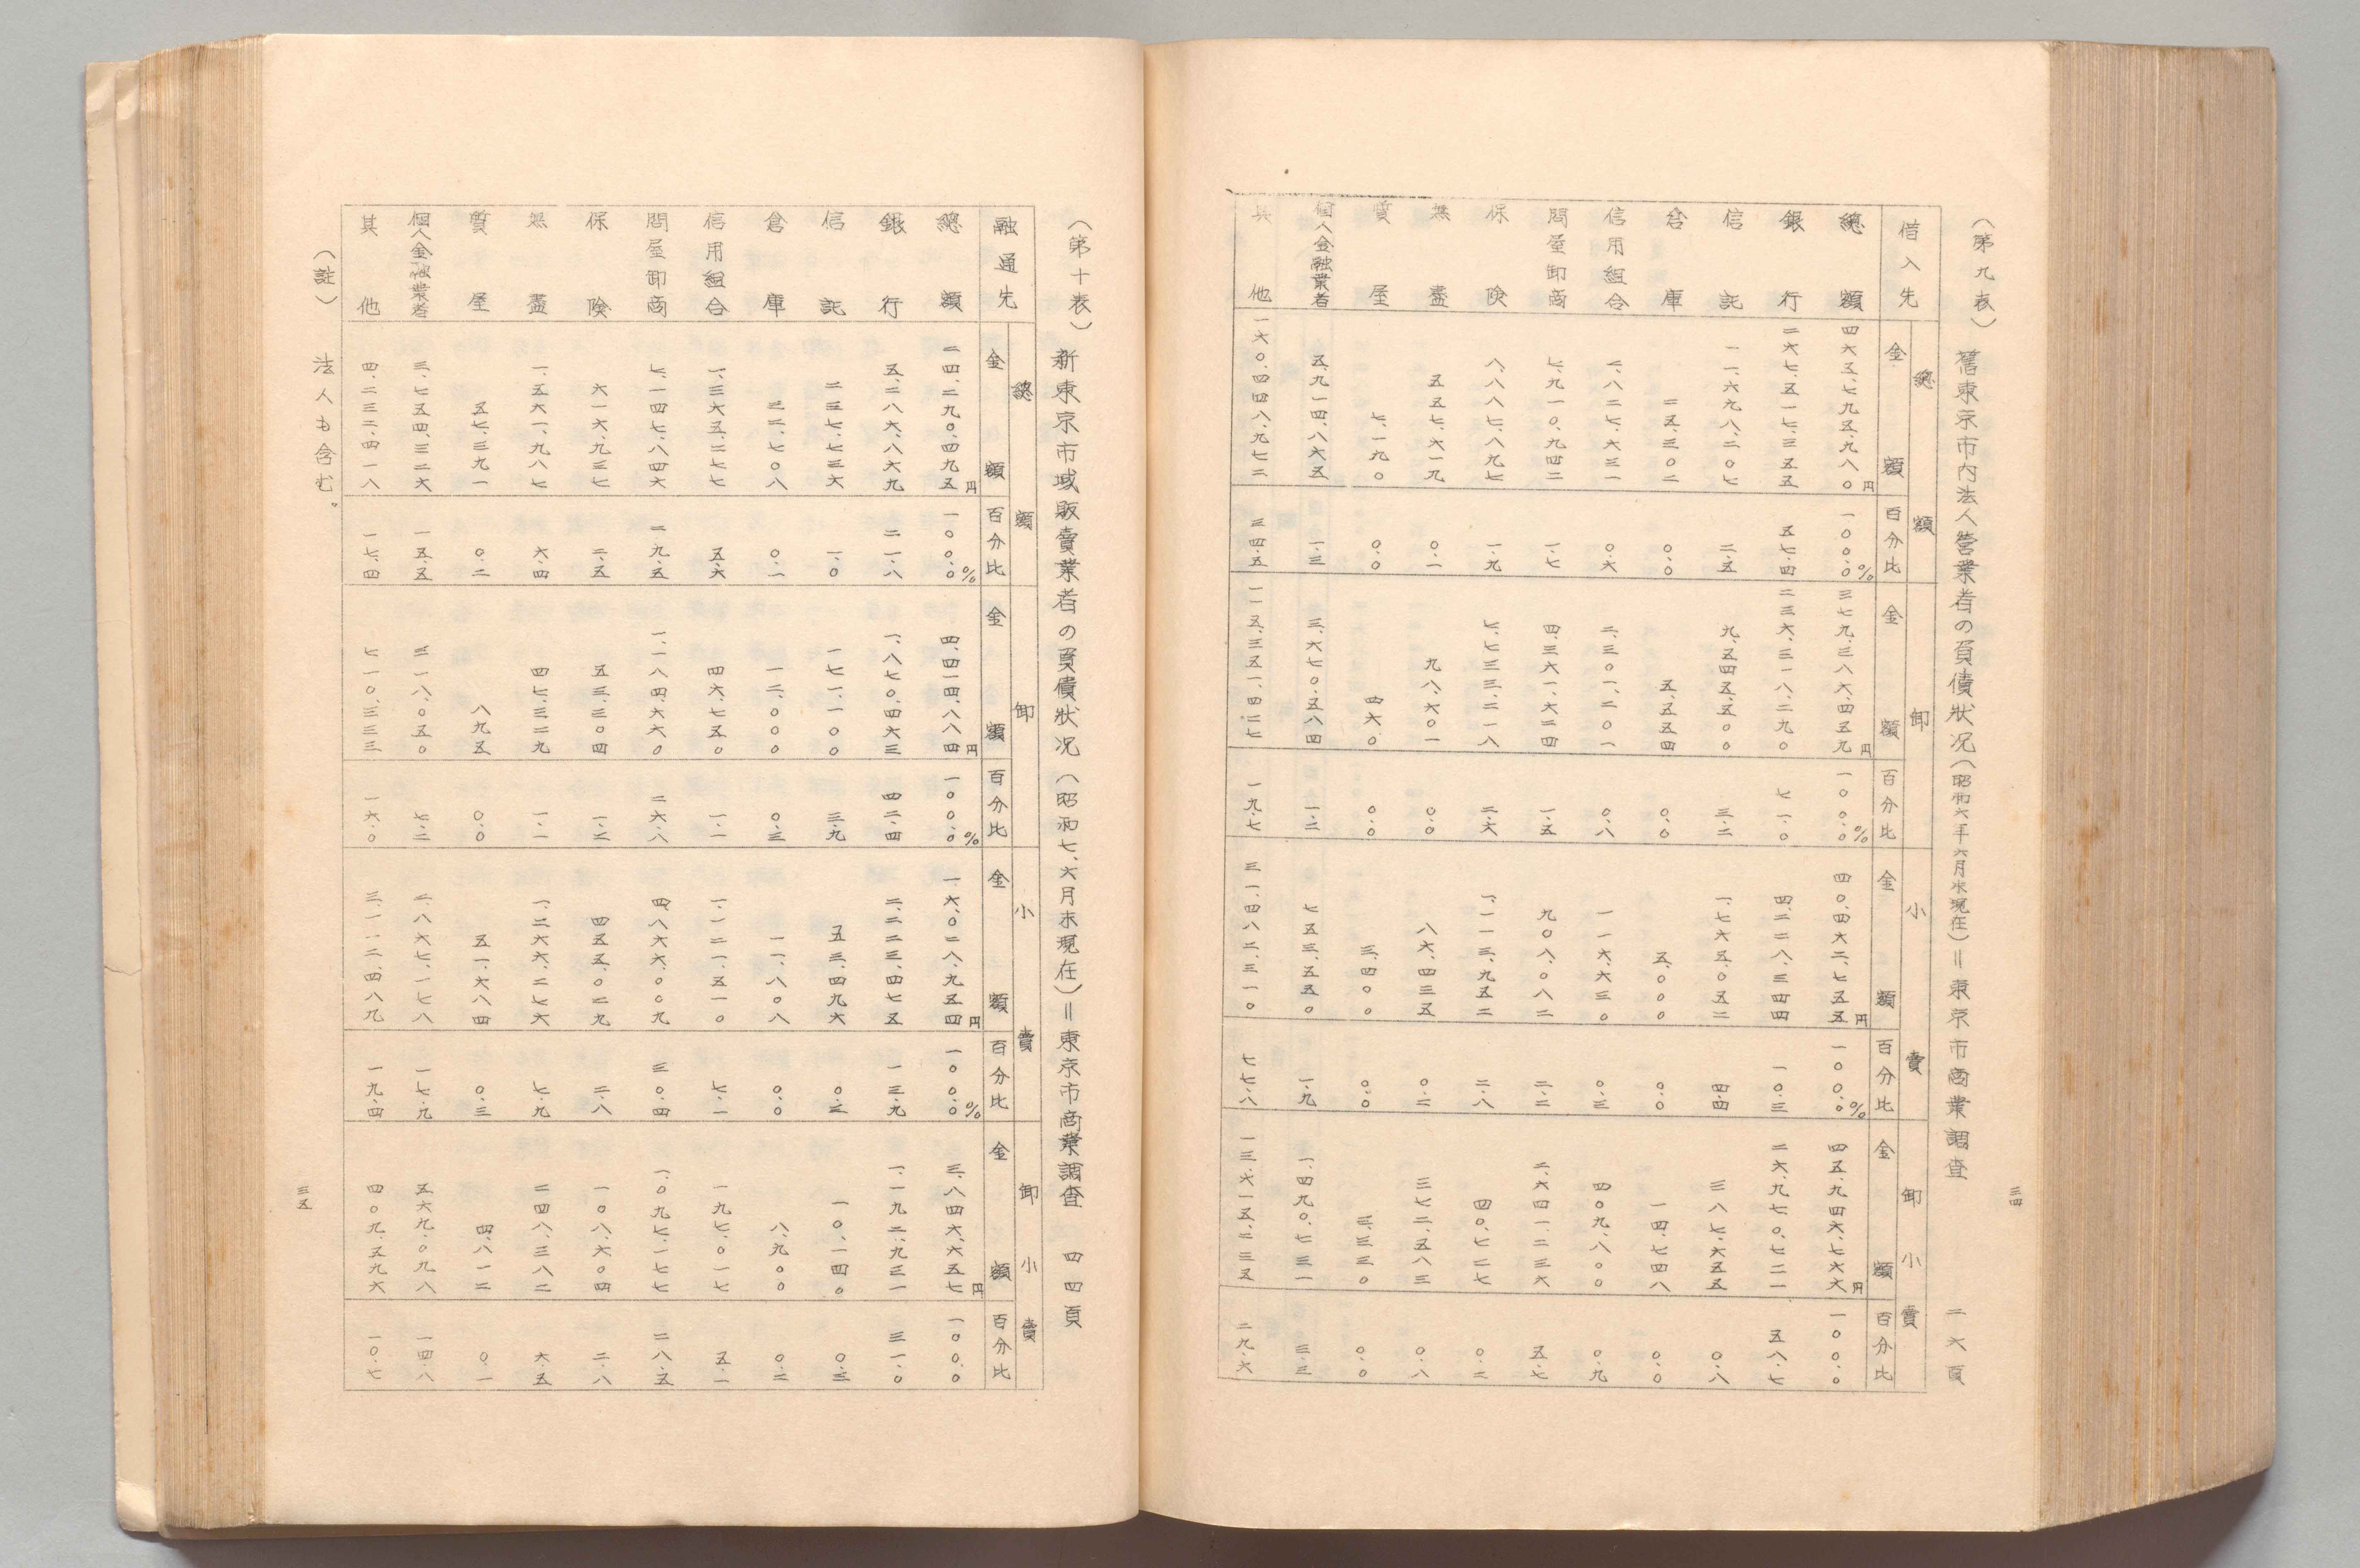 三四
(第九表) 舊東京市内法人營業者の負債狀况(昭和六年六月末現在)=東京市商業調査 二六頁
總額 卸 小賣 卸小賣
借入先 金額 百分比 金額 百分比 金額 百分比 金額 百分比
總額 四六五、七九五、九八〇円 一〇〇.〇% 三七九、三八六、四五九円 一〇〇.〇% 四〇、四六二、七五五円 一〇〇.〇% 四五、九四六、七六六円 一〇〇.〇
銀行 二六七、五一七、三五五 五七.四 二三六、三一八、二九〇 七一.〇 四、二二八、三四四 一〇.三 二六、九七〇、七二一 五八.七
信託 一一、六九八、二〇七 二.五 九、五四五、五〇〇 三.二 一、七六五、〇五二 四.四 三八七、六五五 〇.八
倉庫 二五、三〇二 〇.〇 五、五五四 〇.〇 五、〇〇〇 〇.〇 一四、七四八 〇.〇
信用組合 二、八二七、六三一 〇.六 二、三〇一、二〇一 〇.八 一一六、六三〇 〇.三 四〇九、八〇〇 〇.九
問屋卸商 七、九一〇、九四二 一.七 四、三六一、六二四 一.五 九〇八、〇八二 二.二 二、六四一、二三六 五.七
保険 八、八八七、八九七 一.九 七、七三三、二一八 二.六 一、一一三、九五二 二.八 四〇、七二七 〇.二
無盡 五五七、六一九 〇.一 九八、六〇一 〇.〇 八六、四三五 〇.二 三七二、五八三 〇.八
質屋 七、一九〇 〇.〇 四六〇 〇.〇 三、四〇〇 〇.〇 三、三三〇 〇.〇
個人金融業者 五、九一四、八六五 一.三 三、六七〇、五八四 一.二 七五三、五五〇 一.九 一、四九〇、七三一 三.三
其他 一六〇、四四八、九七二 三四.五 一一五、三五一、四二七 一九.七 三一、四八二、三一〇 七七.八 一三、六一五、二三五 二九.六
(第十表) 新東京市域販賣業者の負債狀况(昭和七、六月末現在)=東京市商業調査 四四頁
總額 卸 小賣 卸小賣
融通先 金額 百分比 金額 百分比 金額 百分比 金額 百分比
總額 二四、二九〇、四九五円 一〇〇.〇% 四、四一四、八八四円 一〇〇.〇% 一六、〇二八、九五四円 一〇〇.〇% 三、八四六、六五七円 一〇〇.〇
銀行 五、二八六、八六九 二一.八 一、八七〇、四六三 四二.四 二、二二三、四七五 一三.九 一、一九二、九三一 三一.〇
信託 二三七、七三六 一.〇 一七一、一〇〇 三.九 五三、四九六 〇.三 一〇、一四〇 〇.三
倉庫 三二、七〇八 〇.一 一二、〇〇〇 〇.三 一一、八〇八 〇.〇 八、九〇〇 〇.二
信用組合 一、三六五、二七七 五.六 四六、七五〇 一.一 一、一二一、五一〇 七.一 一九七、〇一七 五.一
問屋卸商 七、一四七、八四六 二九.五 一、一八四、六六〇 二六.八 四、八六六、〇〇九 三〇.四 一、〇九七、一七七 二八.五
保険 六一六、九三七 二.五 五三、三〇四 一.二 四五五、〇二九 二.八 一〇八、六〇四 二.八
無盡 一、五六一、九八七 六.四 四七、三二九 一.一 一、二六六、二七六 七.九 二四八、三八二 六.五
質屋 五七、三九一 〇.二 八九五 〇.〇 五一、六八四 〇.三 四、八一二 〇.一
個人金融業者 三、七五四、三二六 一五.五 三一八、〇五〇 七.二 二、八六七、一七八 一七.九 五六九、〇九八 一四.八
其他 四、二三二、四一八 一七.四 七一〇、三三三 一六.〇 三、一一二、四八九 一九.四 四〇九、五九六 一〇.七
(註) 法人も含む。
三五